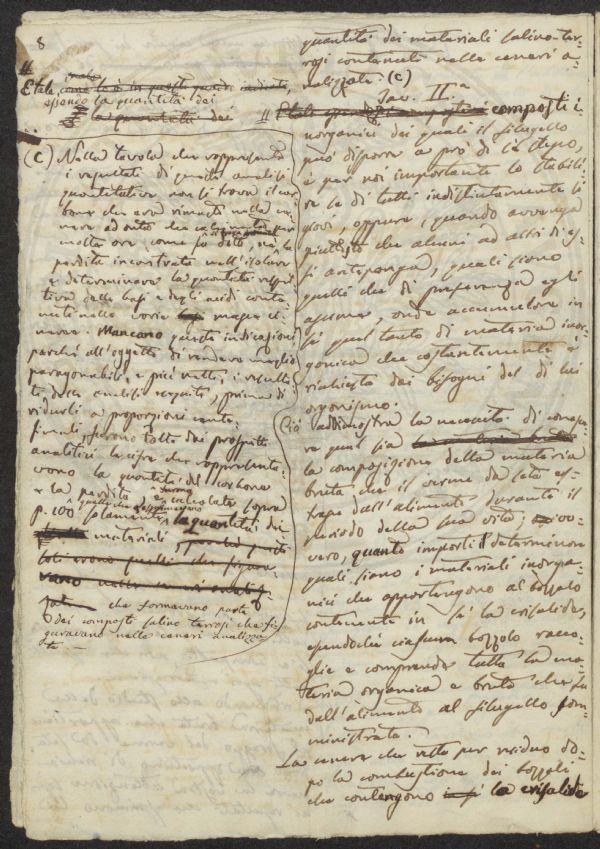 8
#
E tale, come lo è in questi quadri indicati,
essendo la quantità dei
la quantità dei
(C) Nella tavola che rappresenta
i risultati di queste analisi
quantitative non si trova il car
bone che era rimasto nella ce
nere ad onta che calcinata per
molte ore, come fu detto, nè la
perdita incontrata nell'isolare
e determinare la quantità rispet
tiva delle basi e degli acidi conte
nuti nelle varie
nuove. Mancano queste indicazioni
perché all'oggetto di rendere meglio
paragonabili, e più netti, i risulta
ti delle analisi eseguite, prima di
ridurli a proporzioni cente
simali, furono tolte dai prospetti
analitici le cifre che rappresenta
vano la quantità del carbone
e la perdita e calcolate sopra
p. 100 solamente la quantità dei
materiali
che formavano parte
dei composti salino terrosi che fi
guravano nelle ceneri analizza
te. —
quantità dei materiali salino-ter
rosi contenuti nelle ceneri a
nalizzate. (C)
Tav. II.a
// E tale composti i
norganici dei quali il filugello
può disporre a prò di se stesso,
è per noi importante lo stabili
re se di tutti indistintamente si
giovi, oppure, quando avvenga
piuttosto che alcuni ad altri di es
si anteponga, quali siano
quelli che di preferenza egli
assume, onde accumulare in
se quel tanto di materia inor
ganica che costantemente è
richiesta dai bisogni del di lui
organismo.
Ciò addimostra la necessità di conosce
re qual sia
la composizione della materia
bruta, che il verme da seta es
trae dall'alimento durante il
periodo della sua vita; ov
vero, quanto importi il determinare
quali siano i materiali inorga
nici che appartengono al bozzolo
contenente in se la crisalide,
essendochè ciascun bozzolo racco
glie e comprende tutta la ma
teria organica e bruta che fu
dall'alimento al filugello som
ministrata.
La cenere che resta per residuo do
po la combustione dei bozzoli
che contengono in se la crisalide